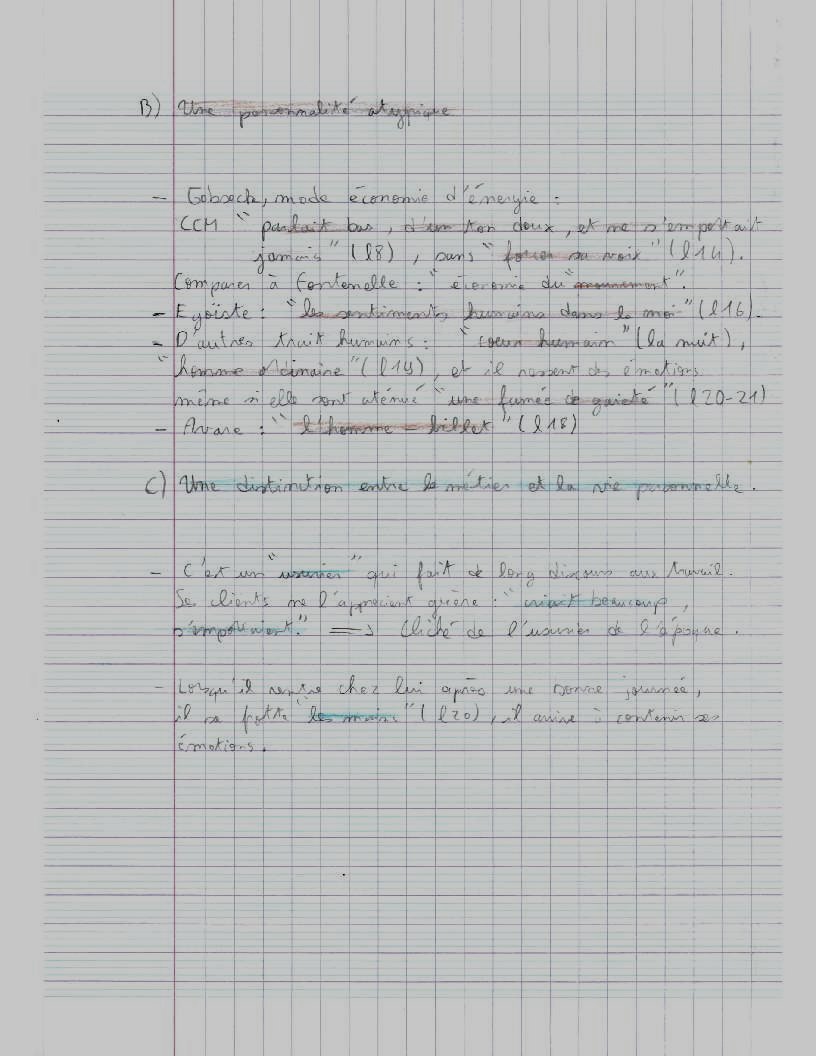 B) Une personnalité atypique
- Gobseck, mode économie d'énergie :
CCM " parlait bas, d'un ton doux, et ne s'emportait
jamais" (l8), sans "forcer sa voix" (l14).
Comparer à Fontenelle : "économie du "mouvement".
- Egoïste : "les sentiments humains dans le moi" (l16).
- D'autres trait humains : "coeur humain" (la nuit),
"homme ordinaire" (l19), et il ressent des émotions
même si elle sont aténué "une fumée de gaieté" (l20-21)
- Avare : "l'homme - billet" (l18)
C) Une distinction entre le métier et la vie personnelle.
- C'est un "usurier" qui fait de long discours aux travail.
Se clients ne l'apprécient guère : "criait beaucoup,
s'emportaient." => Cliché de l'usurier de l'époque.
- Lorsqu'il rentre chez lui après une bonne journée,
il se frotte "les mains" (l20), il arrive à contenir ses
émotions.